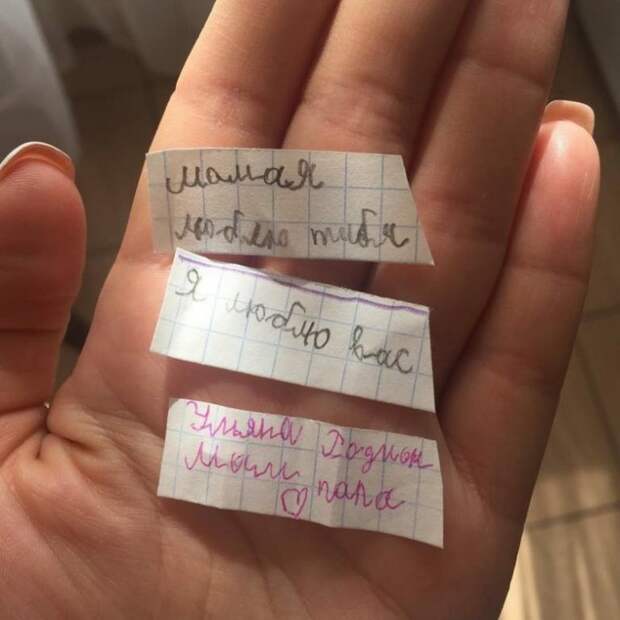 мамая
люблю тибя
Я люблю вас
Ульяна Родион
папа